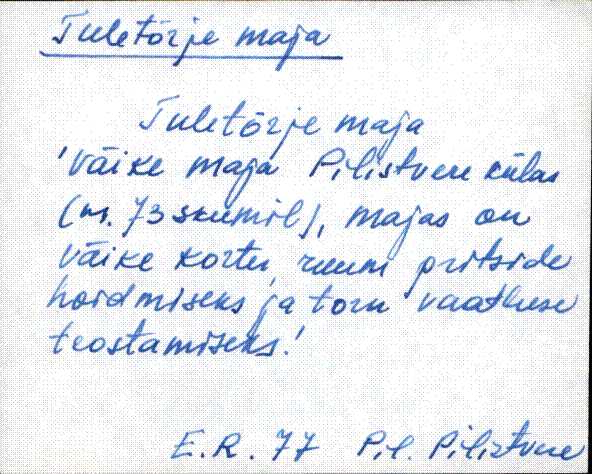 Tuletõrje maja
Tuletõrje maja
'Väike maja Pilistvere külas
(nr. 73 skemil), majas on
väike korter, ruum pritside
hoidmiseks ja torn vaatluse
teostamiseks.'
E.R. 77 Pil. Pilistvere